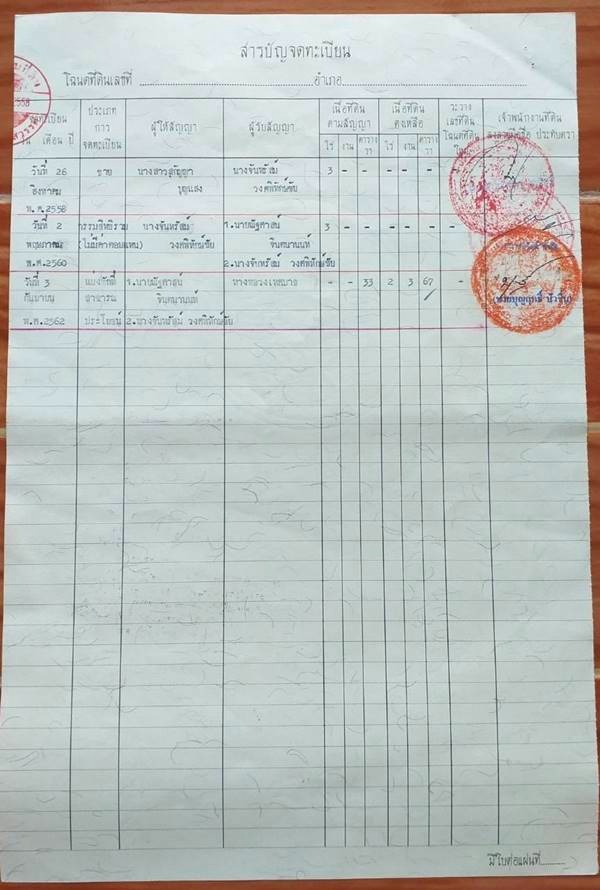 สารบัญจดทะเบียน
โฉนดที่ดินเลขที่ อำเภอ
2558
จดทะเบียน
วัน เดือน ปี
ประเภท
การ
จดทะเบียน
ผู้ให้สัญญา
ผู้รับสัญญา
เนื้อที่ดิน
ตามสัญญา
ไร่ งาน ตาราง
วา
เนื้อที่ดิน
คงเหลือ
ไร่ งาน ตาราง
วา
ระวาง
เลขที่ดิน
โฉนดที่ดิน
ใหม่
เจ้าพนักงานที่ดิน
ลงลายมือชื่อ ประทับตรา
วันที่ 26 ขาย นางสาวสุกัญญา นางจันทรัสม์ 3 - - - - - -
สิงหาคม บุญแสง วงศพิทักษ์ชัย
พ.ศ.2558
วันที่ 2 กรรมสิทธิ์รวม นางจันทรัสม์ 1.นายณัฐศาสน์ 3 - - - - - -
พฤษภาคม (ไม่มีค่าตอบแทน) วงศพิทักษ์ชัย จินตนานนท์
พ.ศ.2560 2.นางจันทรัสม์ วงศพิทักษ์ชัย
วันที่ 3 แบ่งหักที่ 1.นายณัฐศาสน์ ทางหลวงเทศบาล - - 33 2 3 67 -
กันยายน สาธารณ จินตนานนท์
พ.ศ.2562 ประโยชน์ 2.นางจันทรัสม์ วงศพิทักษ์ชัย
มีใบต่อแผ่นที่